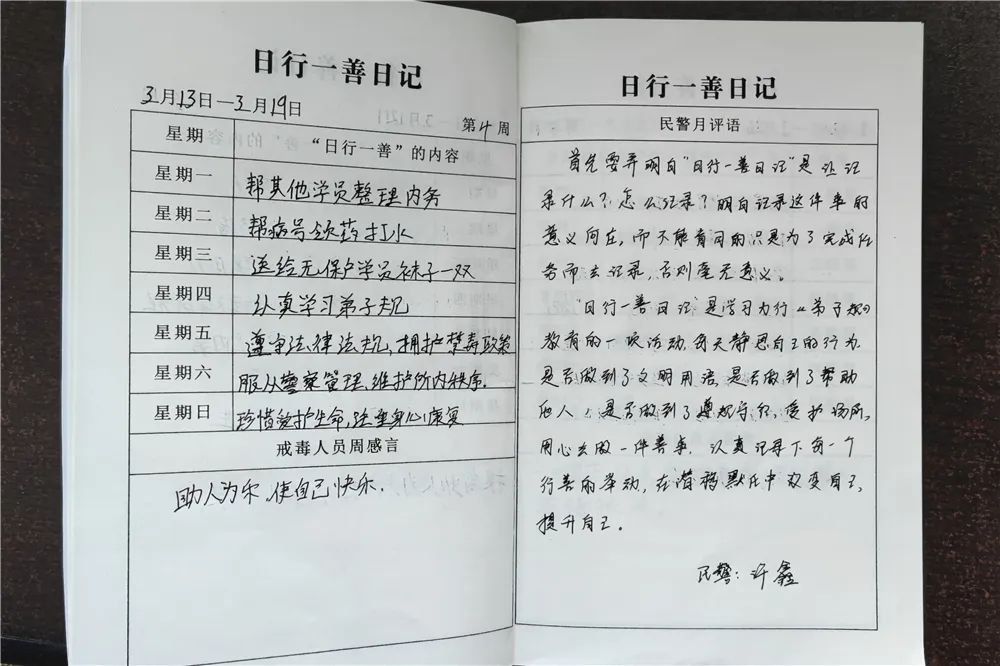 日行一善日记
3月13日—3月19日
第4周
星期 “日行一善”的内容
星期一 帮其他学员整理内务
星期二 帮病号领药打水
星期三 送给无保户学员袜子一双
星期四 认真学习弟子规
星期五 遵守法律法规,拥护禁毒政策
星期六 服从警察管理、维护所内秩序.
星期日 珍惜救护生命,注重身心康复
戒毒人员周感言
助人为乐,使自己快乐.
日行一善日记
民警月评语
首先要弄明白“日行一善日记”是让记
录什么?怎么记录?明白记录这件事的
意义何在,而不能盲目的只是为了完成任
务而去记录,否则毫无意义。
“日行一善日记”是学习力行《弟子规》
教育的一项活动,每天静思自己的行为.
是否做到了文明用语,是否做到了帮助
他人,是否做到了遵规守纪,爱护场所,
用心去做一件善事,认真记录下每一个
行善的举动,在潜移默化中改变自己,
提升自己。
民警:许鑫